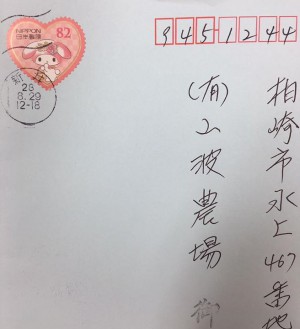 NIPPON
日本郵便
82
新潟
28
8.29
12-18
945-1244
柏崎市水上467番地
(有)山波農場 御